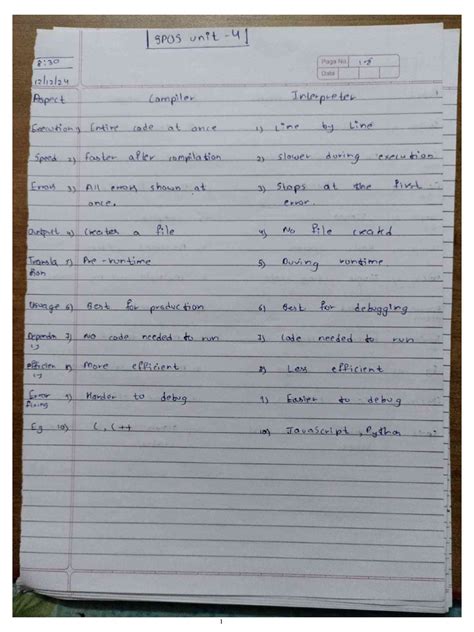 SPOS unit - 4
8:30
Page No. 1-8
Date
12/12/24
Aspect Compiler Interpreter
Execution 1) Entire code at once 1) Line by Line
Speed 2) Faster after compilation 2) slower during execution
Errors 3) All errors shown at 3) Stops at the first
once. error.
Output 4) Creates a file 4) No file creatd
Transla 5) Pre-runtime 5) During runtime
tion
Usage 6) Best for production 6) Best for debugging
Dependen 7) No code needed to run 7) Code needed to run
Efficien 8) More efficient 8) Less efficient
Error 9) Harder to debug 9) Easier to debug
Fixing
Eg 10) C, C++ 10) JavaScript, Python
1